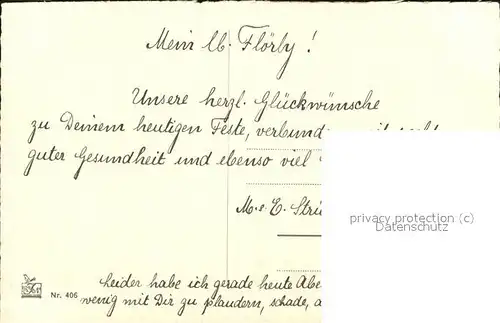 Mein lb. Flörby!
Unsere herzl. Glückwünsche
zu Deinem heutigen Feste,
guter Gesundheit und ebenso viel
M. e. E.
privacy protection (c)
Datenschutz
Nr. 406
Leider habe ich gerade heute
wenig mit Dir zu plaudern, schade,